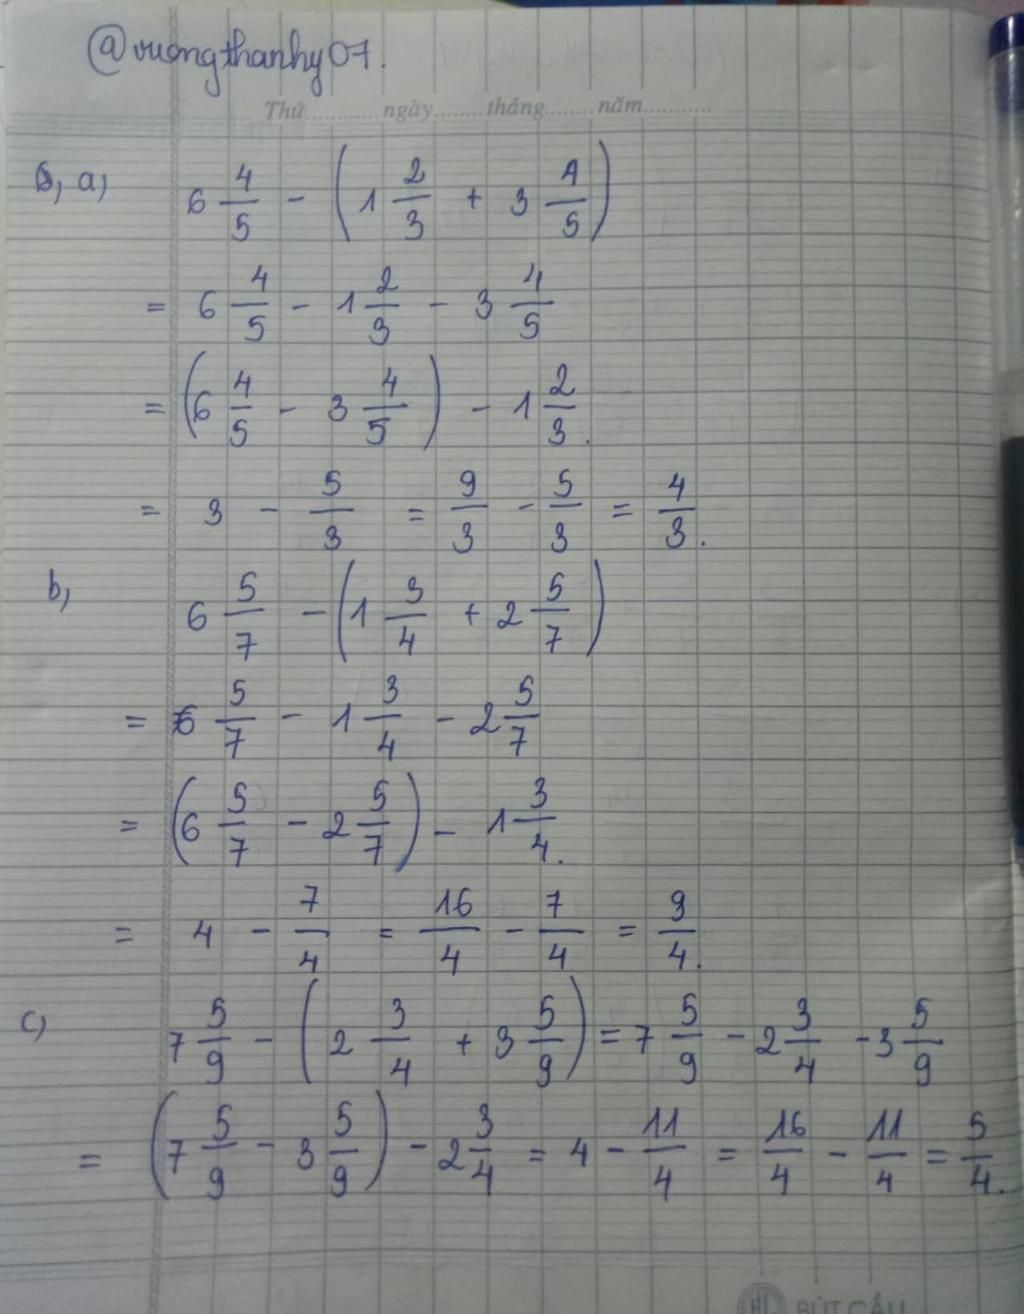 @vuongthanhy07.
Thứ ............ ngày ........ tháng ........ năm ...........
6, a, 6 4/5 - (1 2/3 + 3 4/5)
= 6 4/5 - 1 2/3 - 3 4/5
= (6 4/5 - 3 4/5) - 1 2/3.
= 3 - 5/3 = 9/3 - 5/3 = 4/3.
b, 6 5/7 - (1 3/4 + 2 5/7)
= 6 5/7 - 1 3/4 - 2 5/7
= (6 5/7 - 2 5/7) - 1 3/4.
= 4 - 7/4 = 16/4 - 7/4 = 9/4.
c) 7 5/9 - (2 3/4 + 3 5/9) = 7 5/9 - 2 3/4 - 3 5/9
= (7 5/9 - 3 5/9) - 2 3/4 = 4 - 11/4 = 16/4 - 11/4 = 5/4.